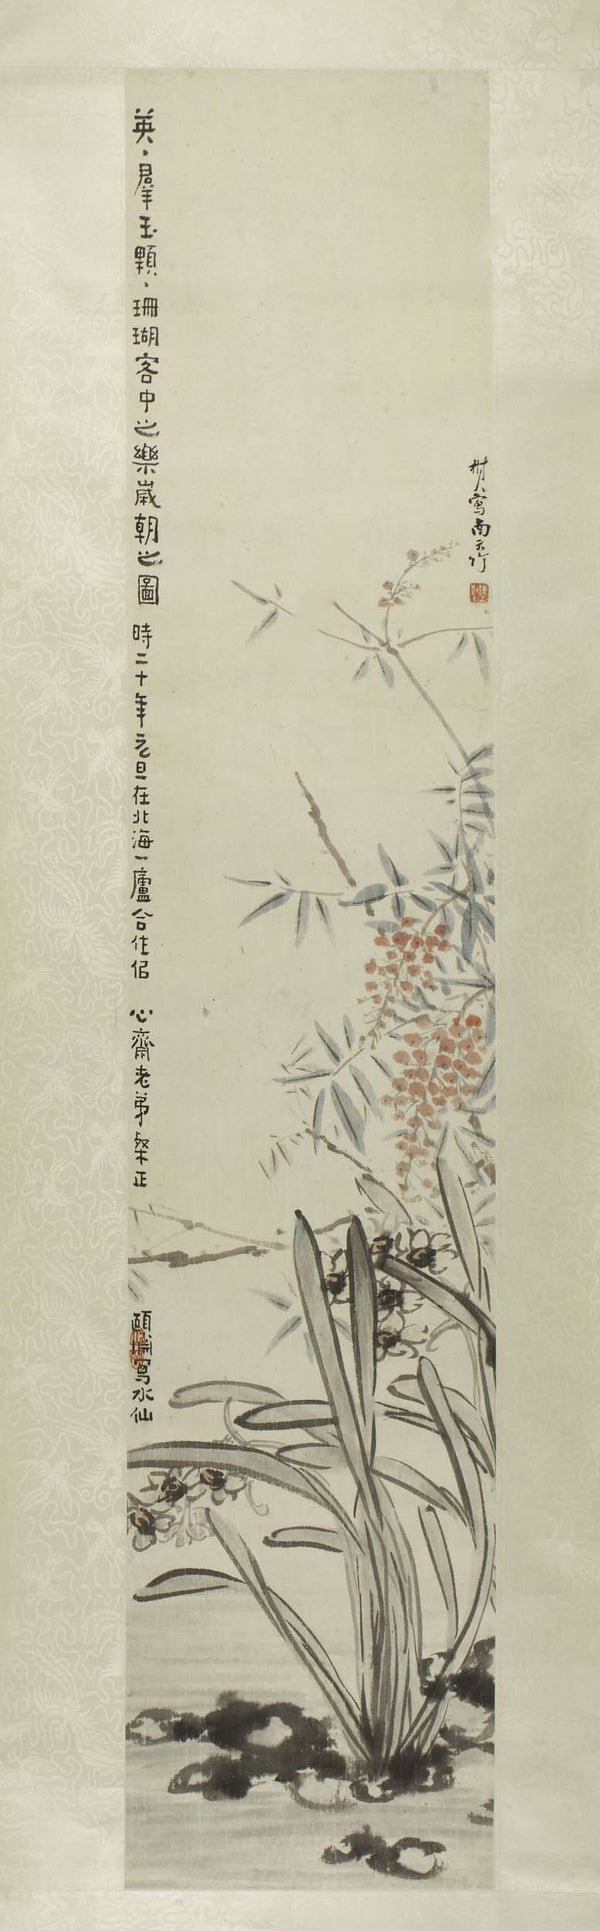 樹人寫南天竹
英、羣玉顆、珊瑚客中之樂嵗朝之圖 時二十年元旦在北海一廬合作佀 心齋老弟粲正
頤寫水仙